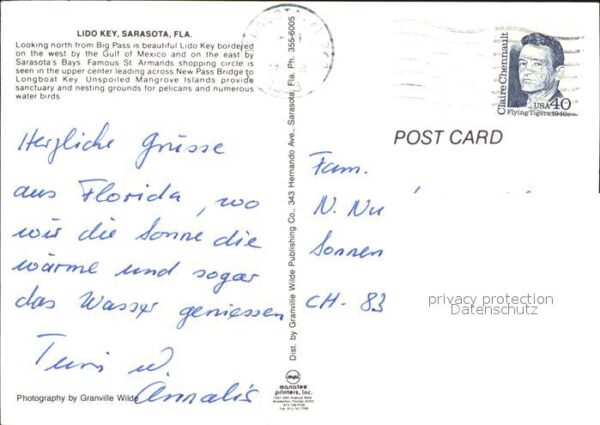 LIDO KEY, SARASOTA, FLA.
Looking north from Big Pass is beautiful Lido Key bordered
on the west by the Gulf of Mexico and on the east by
Sarasota's Bays. Famous St. Armands shopping circle is
seen in the upper center leading across New Pass Bridge to
Longboat Key. Unspoiled Mangrove Islands provide
sanctuary and nesting grounds for pelicans and numerous
water birds
Herzliche Grüsse
aus Florida, wo
wir die Sonne die
wärme und sogar
das Wasser geniessen
Photography by Granville Wilde
Dist. by Granville Wilde Publishing Co., 343 Hernando Ave., Sarasota, Fla. Ph. 355-6005
mpi
manatee
printers, inc.
Claire Chennault
USA 40
Flying Tigers 1940s
POST CARD
Fam.
N. Nu
Sonnen
CH - 83
privacy protection
Datenschutz